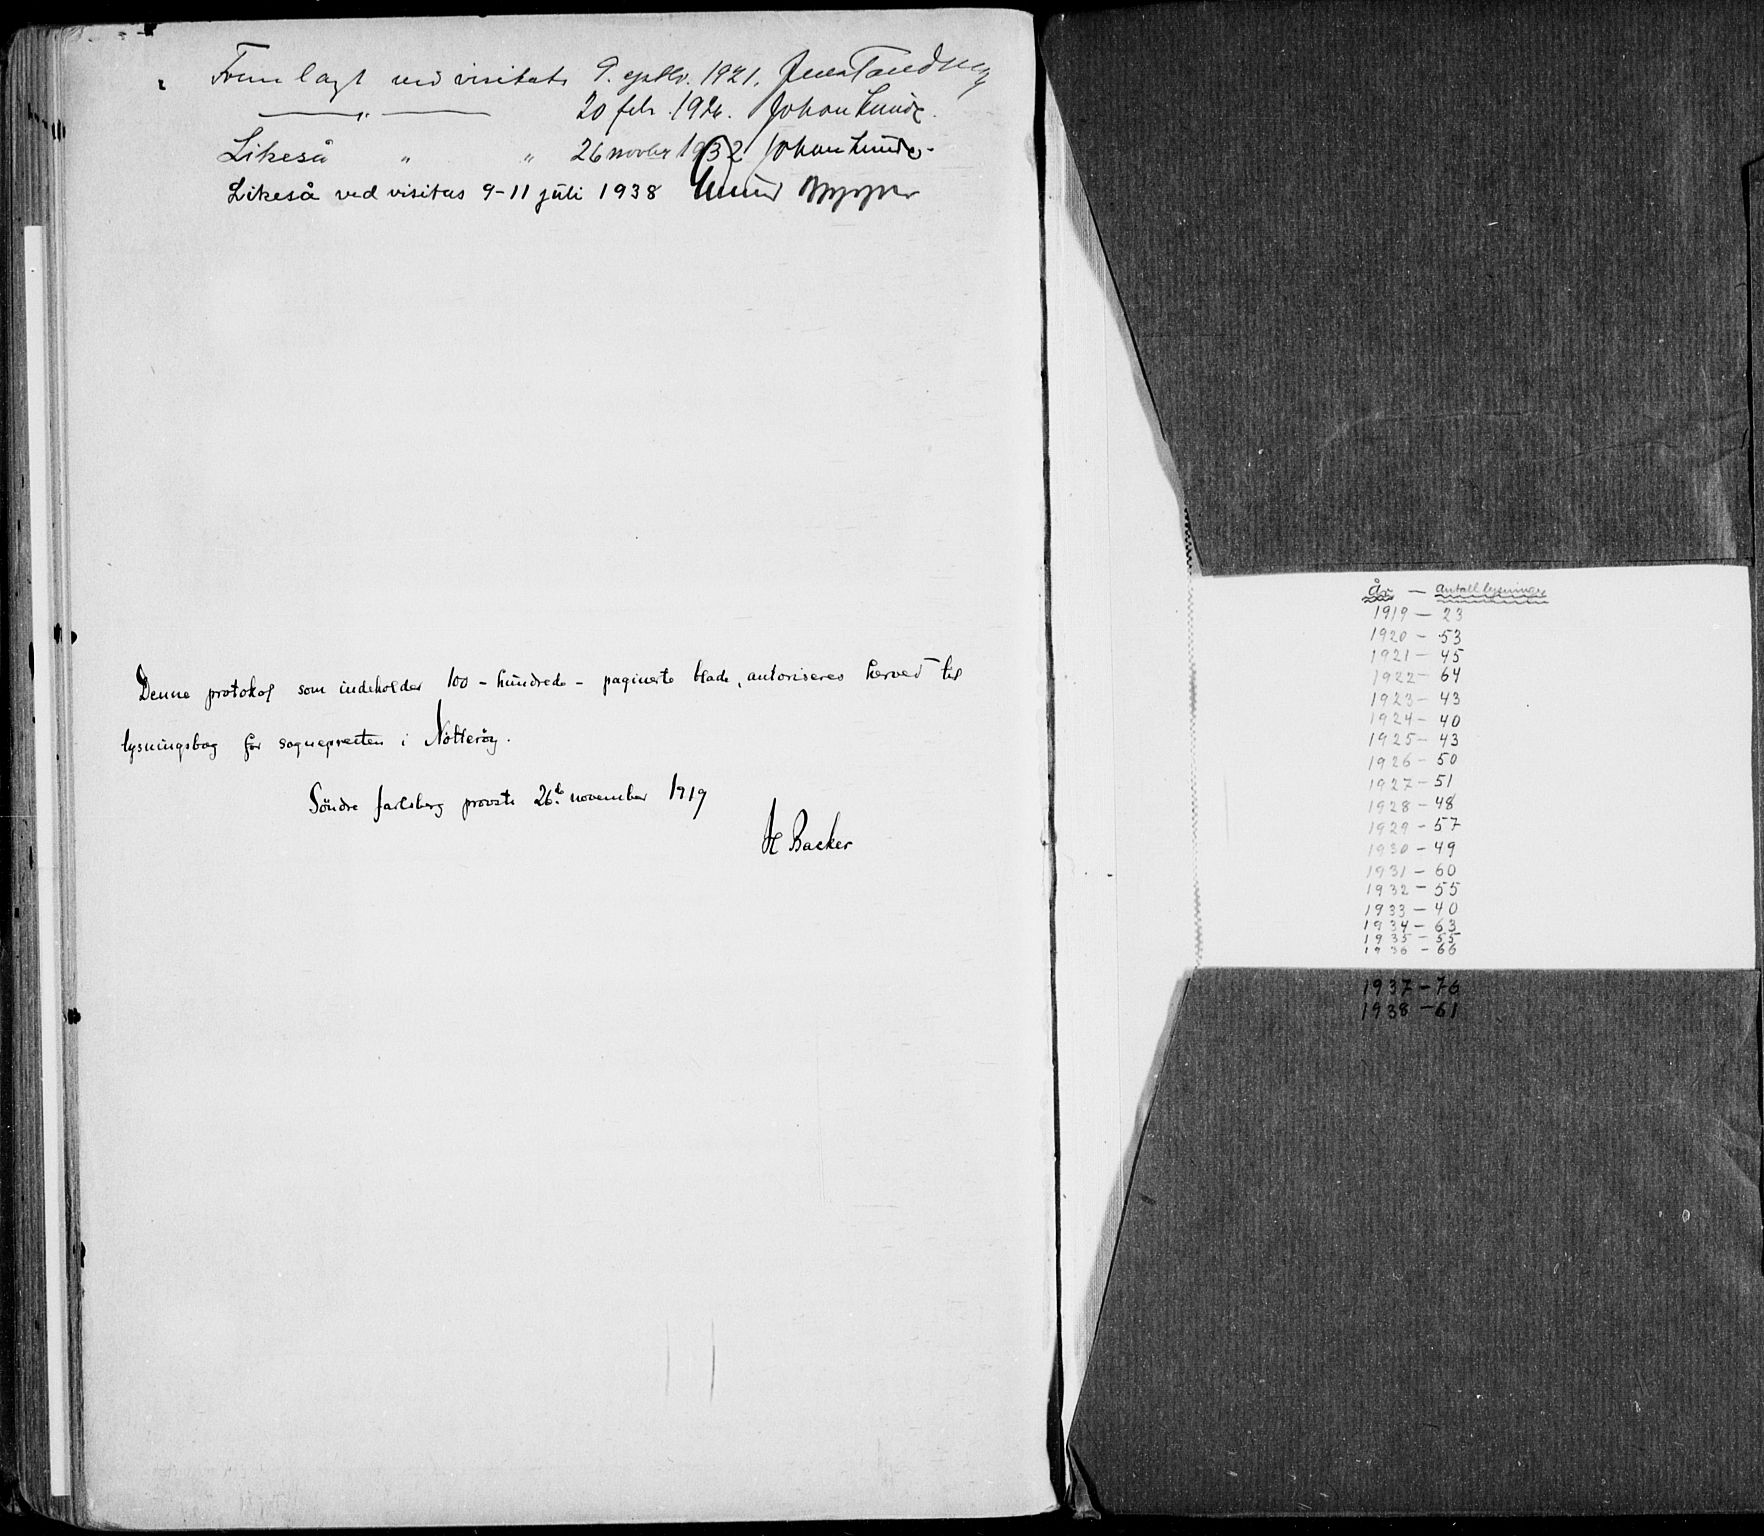 Fremlagt ved visitats 9. septbr. 1921. Jens Tandberg
— „ — 20 febr. 1926. Johan Lunde.
Likeså „ „ 26 novbr 1932 Johan Lunde.
Likeså ved visitas 9-11 juli 1938
Denne protokol som indeholder 100 - hundrede - paginerte blade, autoriseres herved til
lysningsbog for sognepresten i Nøtterøy.
Söndre Jarlsberg provsti 26de november 1919
H Backer
År — Antall lysninger
1919 — 23
1920 — 53
1921 — 45
1922 — 64
1923 — 43
1924 — 40
1925 — 43
1926 — 50
1927 — 51
1928 — 48
1929 — 57
1930 — 49
1931 — 60
1932 — 55
1933 — 40
1934 — 63
1935 — 55
1936 — 66
1937 — 76
1938 — 61